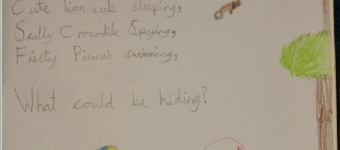 Cute lion cub sleeping,
Sally Crocodile Spying,
Fiesty Pirrnah swimming,
What could be hiding?